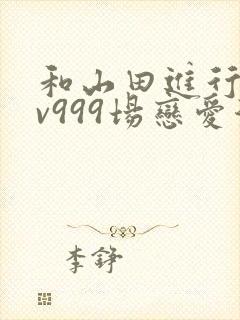 和山田進行
v999場戀愛
李錚